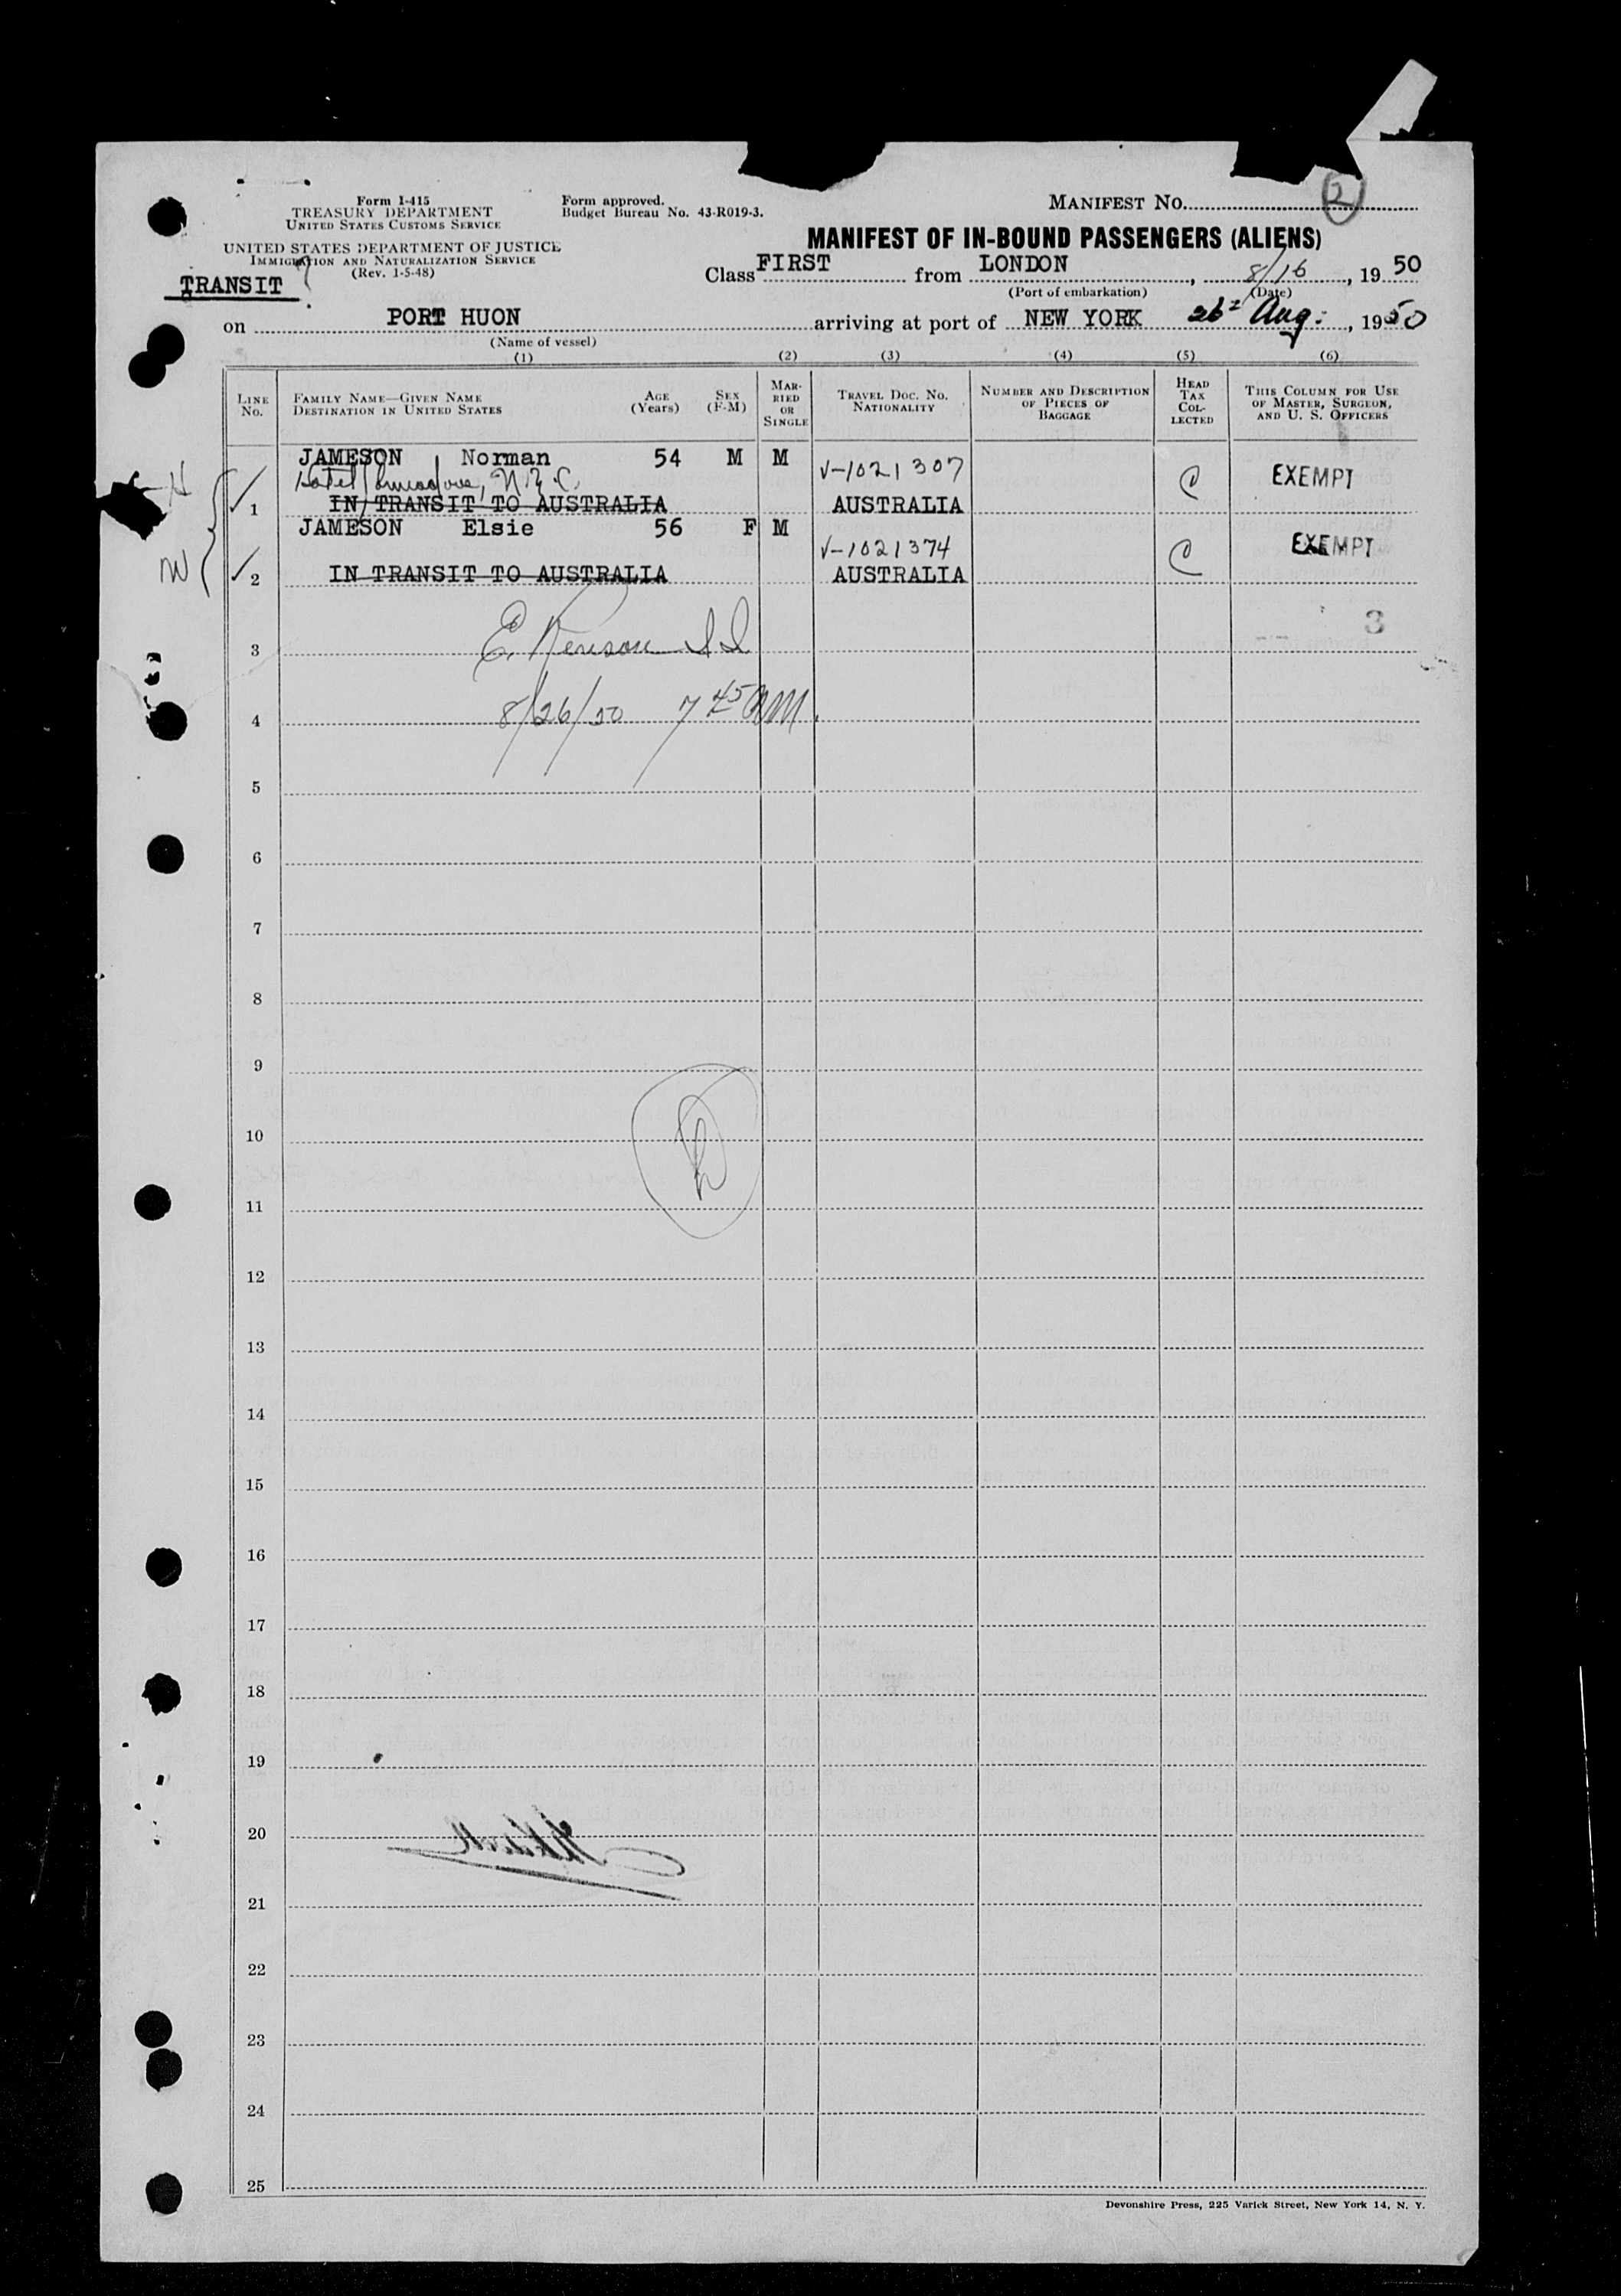 Form I-415
TREASURY DEPARTMENT
UNITED STATES CUSTOMS SERVICE
UNITED STATES DEPARTMENT OF JUSTICE
IMMIGRATION AND NATURALIZATION SERVICE
(Rev. 1-5-48)
TRANSIT
Form approved.
Budget Bureau No. 43-R019-3.
MANIFEST NO. 2
MANIFEST OF IN-BOUND PASSENGERS (ALIENS)
Class FIRST from LONDON, 8/16, 1950
(Port of embarkation) (Date)
on PORT HUON arriving at port of NEW YORK 26 Aug., 1950
(Name of vessel)
(1) (2) (3) (4) (5) (6)
LINE NO. FAMILY NAME—GIVEN NAME DESTINATION IN UNITED STATES AGE (Years) SEX (F-M) MARRIED OR SINGLE TRAVEL DOC. NO. NATIONALITY NUMBER AND DESCRIPTION OF PIECES OF BAGGAGE HEAD TAX COLLECTED THIS COLUMN FOR USE OF MASTER, SURGEON, AND U. S. OFFICERS
JAMESON Norman 54 M M V-1021307 EXEMPT
Hotel Commodore, N.Y.C.
1 IN TRANSIT TO AUSTRALIA AUSTRALIA
JAMESON Elsie 56 F M V-1021374 EXEMPT
2 IN TRANSIT TO AUSTRALIA AUSTRALIA
3
3 E.
4 8/26/50 7 45 AM.
5
6
7
8
9
10
11
12
13
14
15
16
17
18
19
20
21
22
23
24
25
Devonshire Press, 225 Varick Street, New York 14, N. Y.